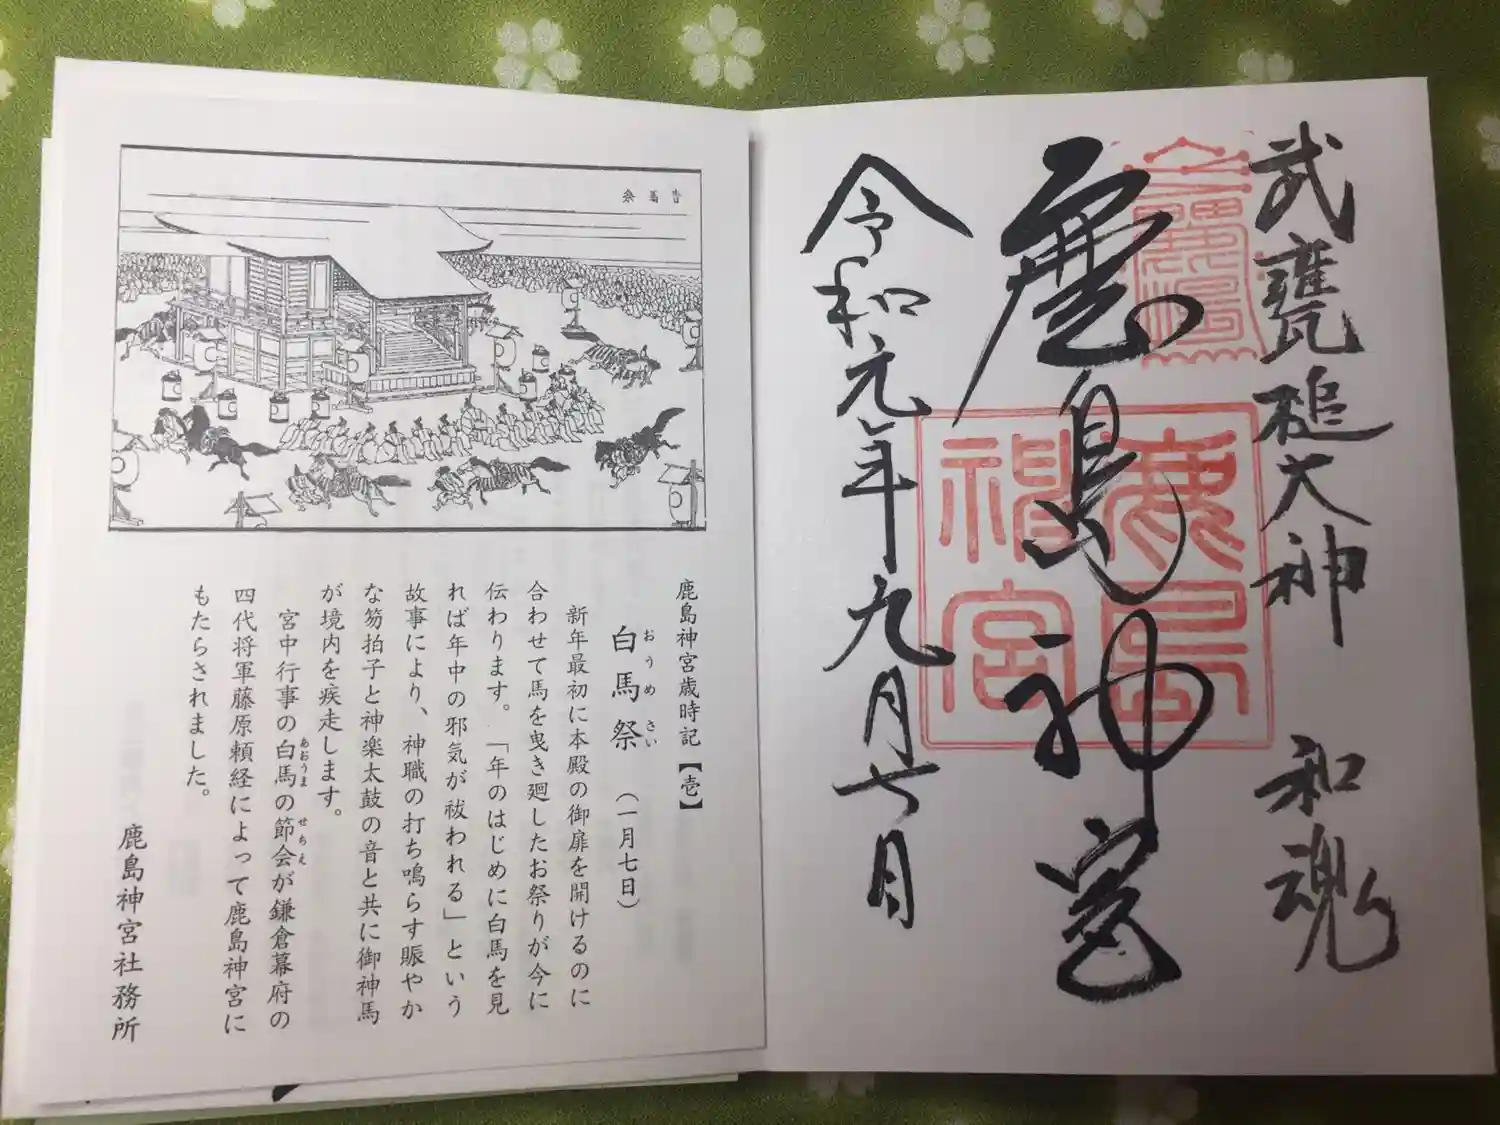 武甕槌大神　和魂
鹿島神宮
令和元年九月七日
鹿島
神宮
鹿島神宮歳時記【壱】
白馬祭　（一月七日）
おうめさい
新年最初に本殿の御扉を開けるのに
合わせて馬を曳き廻したお祭りが今に
伝わります。「年のはじめに白馬を見
れば年中の邪気が祓われる」という
故事により、神職の打ち鳴らす賑やか
な笏拍子と神楽太鼓の音と共に御神馬
が境内を疾走します。
宮中行事の白馬の節会が鎌倉幕府の
あおうま
せちえ
四代将軍藤原頼経によって鹿島神宮に
もたらされました。
鹿島神宮社務所